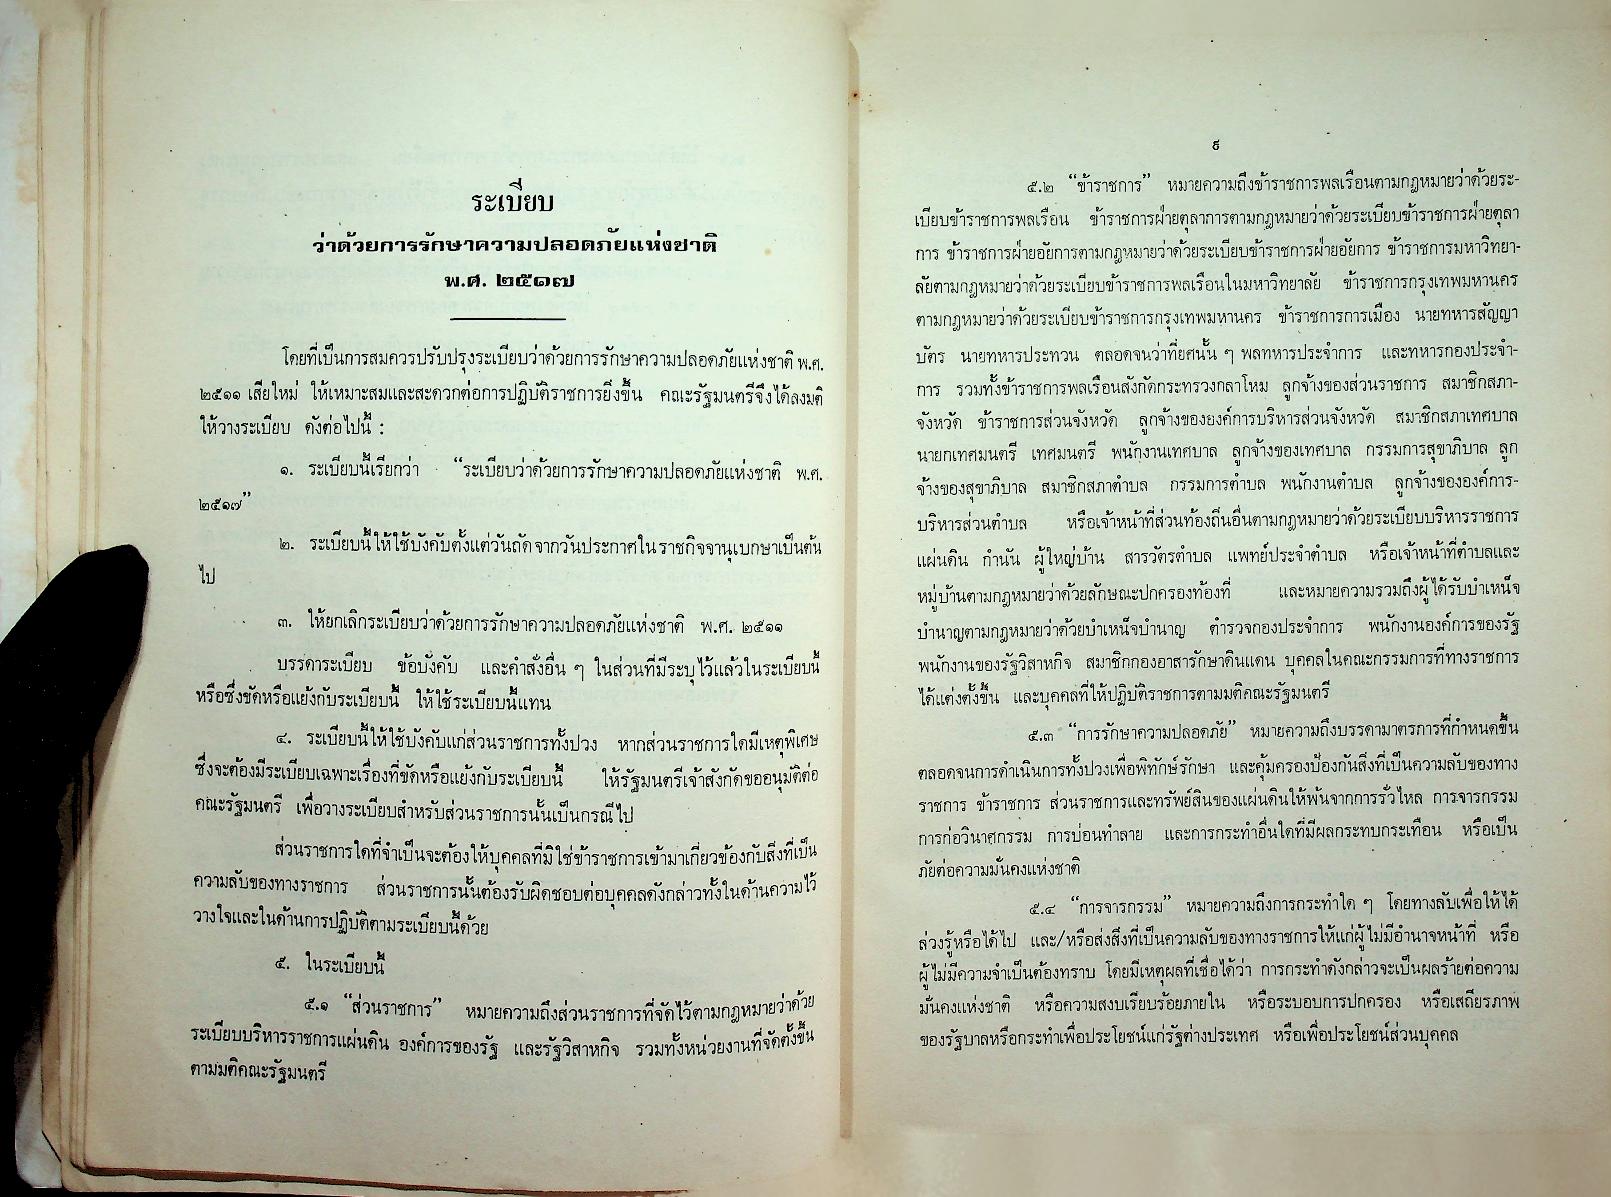 ระเบียบ
ว่าด้วยการรักษาความปลอดภัยแห่งชาติ
พ.ศ. ๒๕๑๗
โดยที่เป็นการสมควรปรับปรุงระเบียบว่าด้วยการรักษาความปลอดภัยแห่งชาติ พ.ศ.
๒๕๑๑ เสียใหม่ ให้เหมาะสมและสะดวกต่อการปฏิบัติราชการยิ่งขึ้น คณะรัฐมนตรีจึงได้ลงมติ
ให้วางระเบียบ ดังต่อไปนี้ :
๑. ระเบียบนี้เรียกว่า “ระเบียบว่าด้วยการรักษาความปลอดภัยแห่งชาติ พ.ศ.
๒๕๑๗”
๒. ระเบียบนี้ให้ใช้บังคับตั้งแต่วันถัดจากวันประกาศในราชกิจจานุเบกษาเป็นต้น
ไป
๓. ให้ยกเลิกระเบียบว่าด้วยการรักษาความปลอดภัยแห่งชาติ พ.ศ. ๒๕๑๑
บรรดาระเบียบ ข้อบังคับ และคำสั่งอื่น ๆ ในส่วนที่มีระบุไว้แล้วในระเบียบนี้
หรือซึ่งขัดหรือแย้งกับระเบียบนี้ ให้ใช้ระเบียบนี้แทน
๔. ระเบียบนี้ให้ใช้บังคับแก่ส่วนราชการทั้งปวง หากส่วนราชการใดมีเหตุพิเศษ
ซึ่งจะต้องมีระเบียบเฉพาะเรื่องที่ขัดหรือแย้งกับระเบียบนี้ ให้รัฐมนตรีเจ้าสังกัดขออนุมัติต่อ
คณะรัฐมนตรี เพื่อวางระเบียบสำหรับส่วนราชการนั้นเป็นกรณีไป
ส่วนราชการใดที่จำเป็นจะต้องให้บุคคลที่มิใช่ข้าราชการเข้ามาเกี่ยวข้องกับสิ่งที่เป็น
ความลับของทางราชการ ส่วนราชการนั้นต้องรับผิดชอบต่อบุคคลดังกล่าวทั้งในด้านความไว้
วางใจและในด้านการปฏิบัติตามระเบียบนี้ด้วย
๕. ในระเบียบนี้
๕.๑ “ส่วนราชการ” หมายความถึงส่วนราชการที่จัดไว้ตามกฎหมายว่าด้วย
ระเบียบบริหารราชการแผ่นดิน องค์การของรัฐ และรัฐวิสาหกิจ รวมทั้งหน่วยงานที่จัดตั้งขึ้น
ตามมติคณะรัฐมนตรี
๕.๒ “ข้าราชการ” หมายความถึงข้าราชการพลเรือนตามกฎหมายว่าด้วยระ-
เบียบข้าราชการพลเรือน ข้าราชการฝ่ายตุลาการตามกฎหมายว่าด้วยระเบียบข้าราชการฝ่ายตุลา
การ ข้าราชการฝ่ายอัยการตามกฎหมายว่าด้วยระเบียบข้าราชการฝ่ายอัยการ ข้าราชการมหาวิทยา-
ลัยตามกฎหมายว่าด้วยระเบียบข้าราชการพลเรือนในมหาวิทยาลัย ข้าราชการกรุงเทพมหานคร
ตามกฎหมายว่าด้วยระเบียบข้าราชการกรุงเทพมหานคร ข้าราชการการเมือง นายทหารสัญญา
บัตร นายทหารประทวน ตลอดจนว่าที่ยศนั้น ๆ พลทหารประจำการ และทหารกองประจำ-
การ รวมทั้งข้าราชการพลเรือนสังกัดกระทรวงกลาโหม ลูกจ้างของส่วนราชการ สมาชิกสภา-
จังหวัด ข้าราชการส่วนจังหวัด ลูกจ้างขององค์การบริหารส่วนจังหวัด สมาชิกสภาเทศบาล
นายกเทศมนตรี เทศมนตรี พนักงานเทศบาล ลูกจ้างของเทศบาล กรรมการสุขาภิบาล ลูก
จ้างของสุขาภิบาล สมาชิกสภาตำบล กรรมการตำบล พนักงานตำบล ลูกจ้างขององค์การ-
บริหารส่วนตำบล หรือเจ้าหน้าที่ส่วนท้องถิ่นอื่นตามกฎหมายว่าด้วยระเบียบบริหารราชการ
แผ่นดิน กำนัน ผู้ใหญ่บ้าน สารวัตรตำบล แพทย์ประจำตำบล หรือเจ้าหน้าที่ตำบลและ
หมู่บ้านตามกฎหมายว่าด้วยลักษณะปกครองท้องที่ และหมายความรวมถึงผู้ได้รับบำเหน็จ
บำนาญตามกฎหมายว่าด้วยบำเหน็จบำนาญ ตำรวจกองประจำการ พนักงานองค์การของรัฐ
พนักงานของรัฐวิสาหกิจ สมาชิกกองอาสารักษาดินแดน บุคคลในคณะกรรมการที่ทางราชการ
ได้แต่งตั้งขึ้น และบุคคลที่ให้ปฏิบัติราชการตามมติคณะรัฐมนตรี
๕.๓ “การรักษาความปลอดภัย” หมายความถึงบรรดามาตรการที่กำหนดขึ้น
ตลอดจนการดำเนินการทั้งปวงเพื่อพิทักษ์รักษา และคุ้มครองป้องกันสิ่งที่เป็นความลับของทาง
ราชการ ข้าราชการ ส่วนราชการและทรัพย์สินของแผ่นดินให้พ้นจากการรั่วไหล การจารกรรม
การก่อวินาศกรรม การบ่อนทำลาย และการกระทำอื่นใดที่มีผลกระทบกระเทือน หรือเป็น
ภัยต่อความมั่นคงแห่งชาติ
๕.๔ “การจารกรรม” หมายความถึงการกระทำใด ๆ โดยทางลับเพื่อให้ได้
ล่วงรู้หรือได้ไป และ/หรือส่งสิ่งที่เป็นความลับของทางราชการให้แก่ผู้ไม่มีอำนาจหน้าที่ หรือ
ผู้ไม่มีความจำเป็นต้องทราบ โดยมีเหตุผลที่เชื่อได้ว่า การกระทำดังกล่าวจะเป็นผลร้ายต่อความ
มั่นคงแห่งชาติ หรือความสงบเรียบร้อยภายใน หรือระบอบการปกครอง หรือเสถียรภาพ
ของรัฐบาลหรือกระทำเพื่อประโยชน์แก่รัฐต่างประเทศ หรือเพื่อประโยชน์ส่วนบุคคล